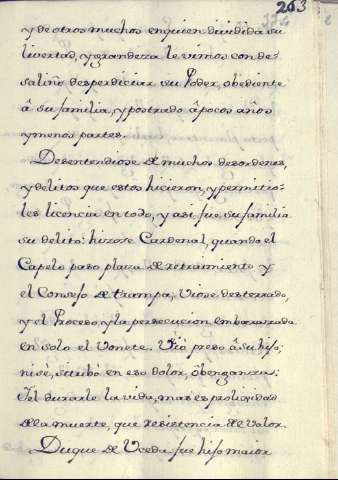 203
y de otros muchos en quien dividida su
livertad, y grandeza le vimos con de-
saliño desperdiciar su Poder, obediente
â su familia, y postrado â pocos años
y menos partes.
Desentendiose de muchos desordenes,
y delitos que estos hicieron, y permitio-
les licencia en todo, y asi fue su familia
su delito: hizose Cardenal, quando el
Capelo paso plaza de retraimiento y
el Consejo de trampa; Viose desterrado,
y el Proceso, y la persecucion embarazada
en solo el Vonete. Vió preso â su hijo;
ni sè, si tubò en eso dolor, ò benganza:
I el durarle la vida, mas es prolixidad
de la muerte, que resistencia de Valor.
Duque de Uceda fue hijo maior